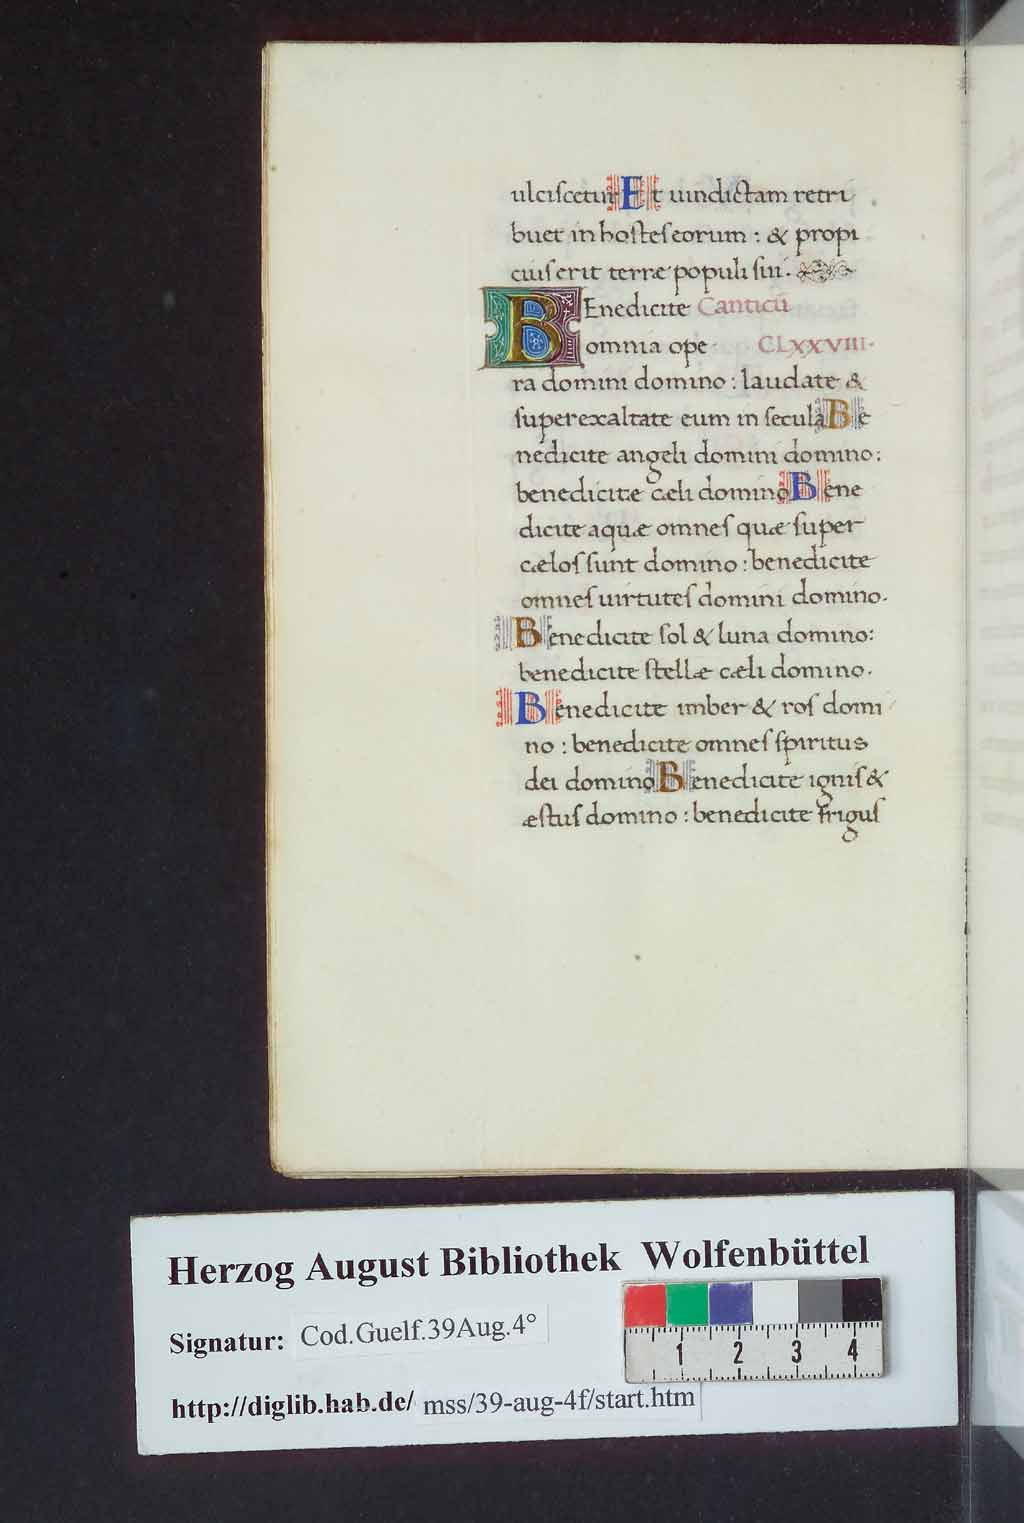 ulciſcetur Et uindictam retri
buet in hoſteſ eorum : & propi
ciuſ erit terræ populi ſui.
BEnedicite Canticū
omnia ope CLXXVIII.
ra domini domino : laudate &
ſuperexaltate eum in ſecula Be
nedicite angeli domini domino :
benedicite cæli domino Bene
dicite aquæ omneſ quæ ſuper
cæloſ ſunt domino : benedicite
omneſ uirtuteſ domini domino.
Benedicite ſol & luna domino :
benedicite ſtellæ cæli domino.
Benedicite imber & roſ domi
no : benedicite omneſ ſpiritus
dei domino Benedicite igniſ &
æſtus domino : benedicite friguſ
Herzog August Bibliothek Wolfenbüttel
Signatur: Cod.Guelf.39Aug.4°
http://diglib.hab.de/ mss/39-aug-4f/start.htm
1 2 3 4